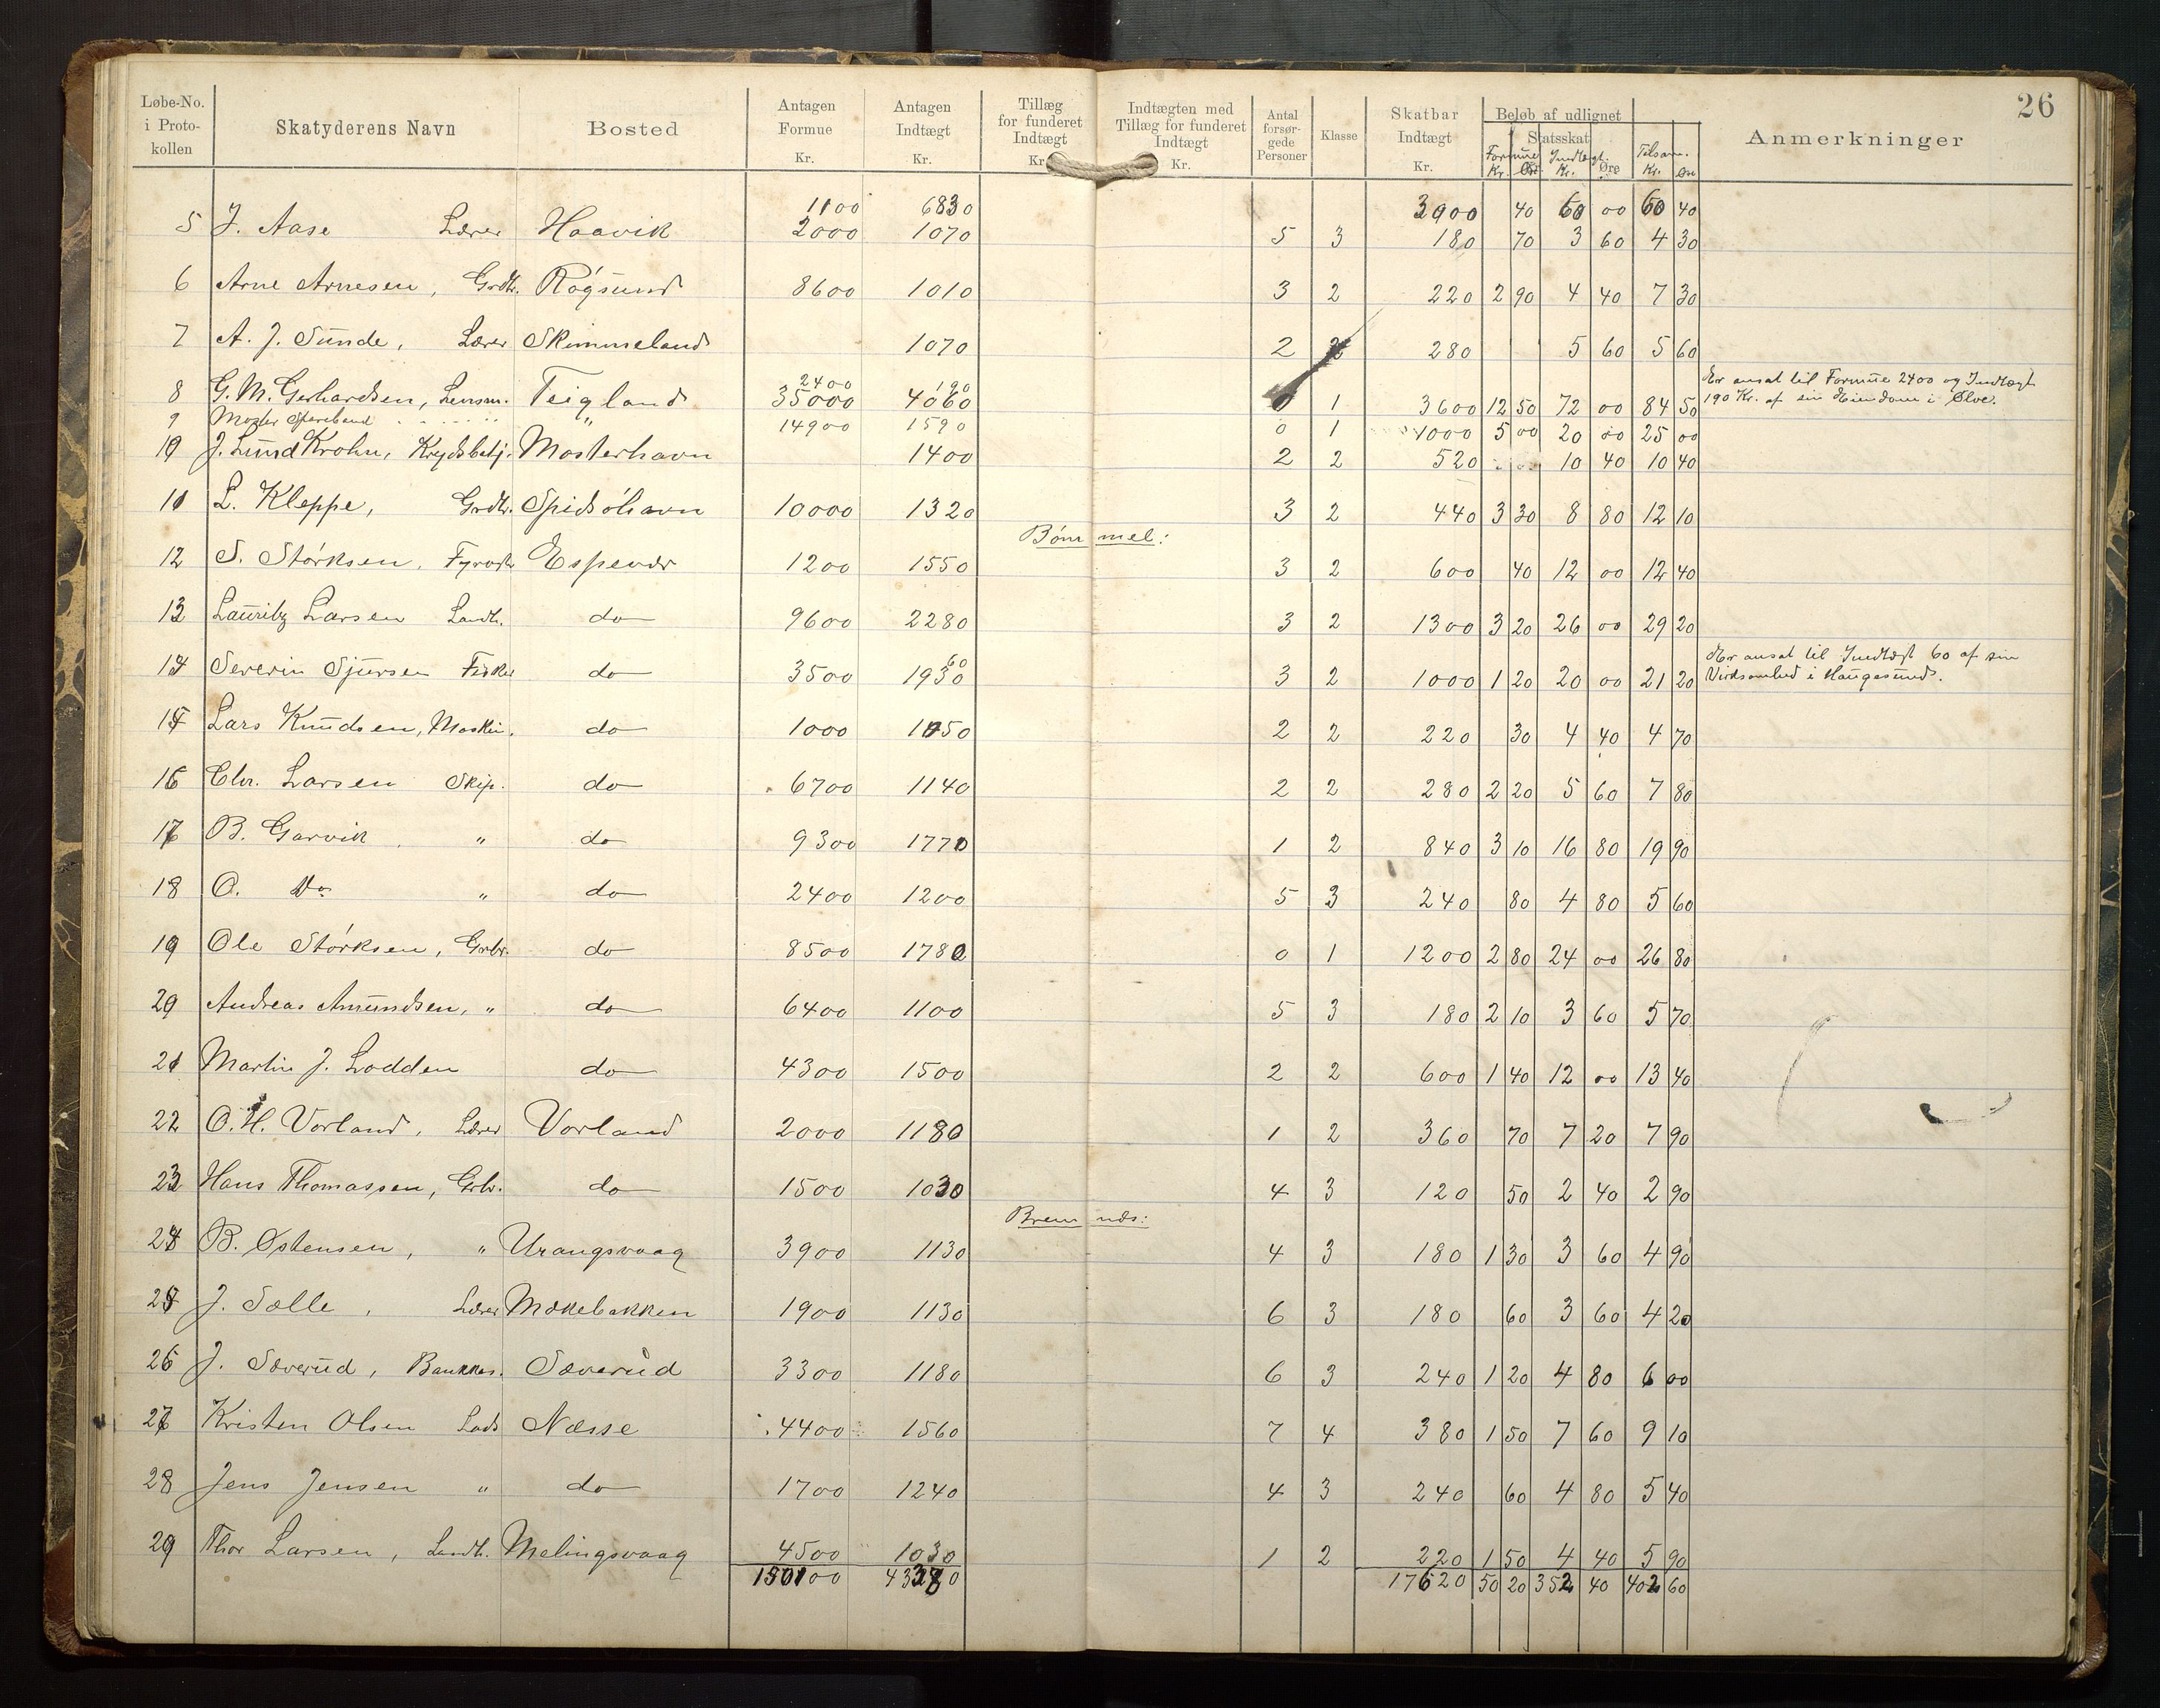 26
Løbe-No. i Proto- kollen | Skatyderens Navn | Bosted | Antagen Formue Kr. | Antagen Indtægt Kr. | Tillæg for funderet Indtægt Kr. | Indtægten med Tillæg for funderet Indtægt Kr. | Antal forsør- gede Personer | Klasse | Skatbar Indtægt Kr. | Beløb af udlignet Statsskat Formue Kr. Øre Indtægt. Kr. Øre Tilsam. Kr. Øre | Anmerkninger
1100 6830 3000 40 60 00 60 40
5 J. Aase Lærer Haavik 2000 1070 5 3 180 70 3 60 4 30
6 Arne Arnesen, Grdbr. Rögsund 8600 1010 3 2 220 2 90 4 40 7 30
7 A. J. Sunde, Lærer Skimmeland 1070 2 280 5 60 5 60
8 G. M. Gerhardsen, Lensm. Teigland 2400 35000 190 4060 0 1 3600 12 50 72 00 84 50 Er ansat til Formue 2400 og Indtægt 190 Kr. af sin Eiendom i Ølve.
9 Moster Sparebank " 14900 1590 0 1 1000 5 00 20 00 25 00
10 J. Lund Krohn, Krydsbetj. Mosterhavn 1400 2 2 520 10 40 10 40
11 L. Kleppe, Grdbr. Spidsöhavn 10000 1320 3 2 440 3 30 8 80 12 10
Bömmel:
12 S. Störksen, Fyrvogt Espevær 1200 1550 3 2 600 40 12 00 12 40
13 Lauritz Larsen Landh. do 9600 2280 3 2 1300 3 20 26 00 29 20
14 Severin Sjursen Fisker do 3500 60 1930 3 2 1000 1 20 20 00 21 20 Er ansat til Indtægt 60 af sin Virksomhed i Haugesund.
15 Lars Knudsen, Maskin. do 1000 1050 2 2 220 30 4 40 4 70
16 Chr. Larsen Skip. do 6700 1140 2 2 280 2 20 5 60 7 80
17 B. Garvik, " do 9300 1770 1 2 840 3 10 16 80 19 90
18 O. Do " do 2400 1200 5 3 240 80 4 80 5 60
19 Ole Störksen, Grbr. do 8500 1780 0 1 1200 2 80 24 00 26 80
20 Andreas Amundsen, " do 6400 1100 5 3 180 2 10 3 60 5 70
21 Martin J. Lodden do 4300 1500 2 2 600 1 40 12 00 13 40
22 O. H. Vorland, Lærer Vorland 2000 1180 1 2 360 70 7 20 7 90
23 Hans Thomassen, Grbr. do 1500 1030 4 3 120 50 2 40 2 90
Bremnæs:
24 B. Østensen, " Urangsvaag 3900 1130 4 3 180 1 30 3 60 4 90
25 J. Sælle, Lærer Mækebakken 1900 1130 6 3 180 60 3 60 4 20
26 J. Sæverud, Bankkas. Sæverud 3300 1180 6 3 240 1 20 4 80 6 00
27 Kristen Olsen Lods Næsse 4400 1560 7 4 380 1 50 7 60 9 10
28 Jens Jensen " do 1700 1240 4 3 240 60 4 80 5 40
29 Thor Larsen, Landh. Melingsvaag 4500 1030 1 2 220 1 50 4 40 5 90
150100 17620 50 20 352 40 402 60